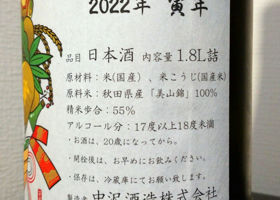 2022年 寅年
品目 日本酒 内容量 1.8L詰
原材料：米(国産)、米こうじ(国産米)
原料米：秋田県産「美山錦」100%
精米歩合：55%
アルコール分：17度以上18度未満
・お酒は、20歳になってから。
・開栓後は、お早めにお飲みください。
・保存は、冷蔵庫にてお願い致します。
製造者 中沢酒造株式会社